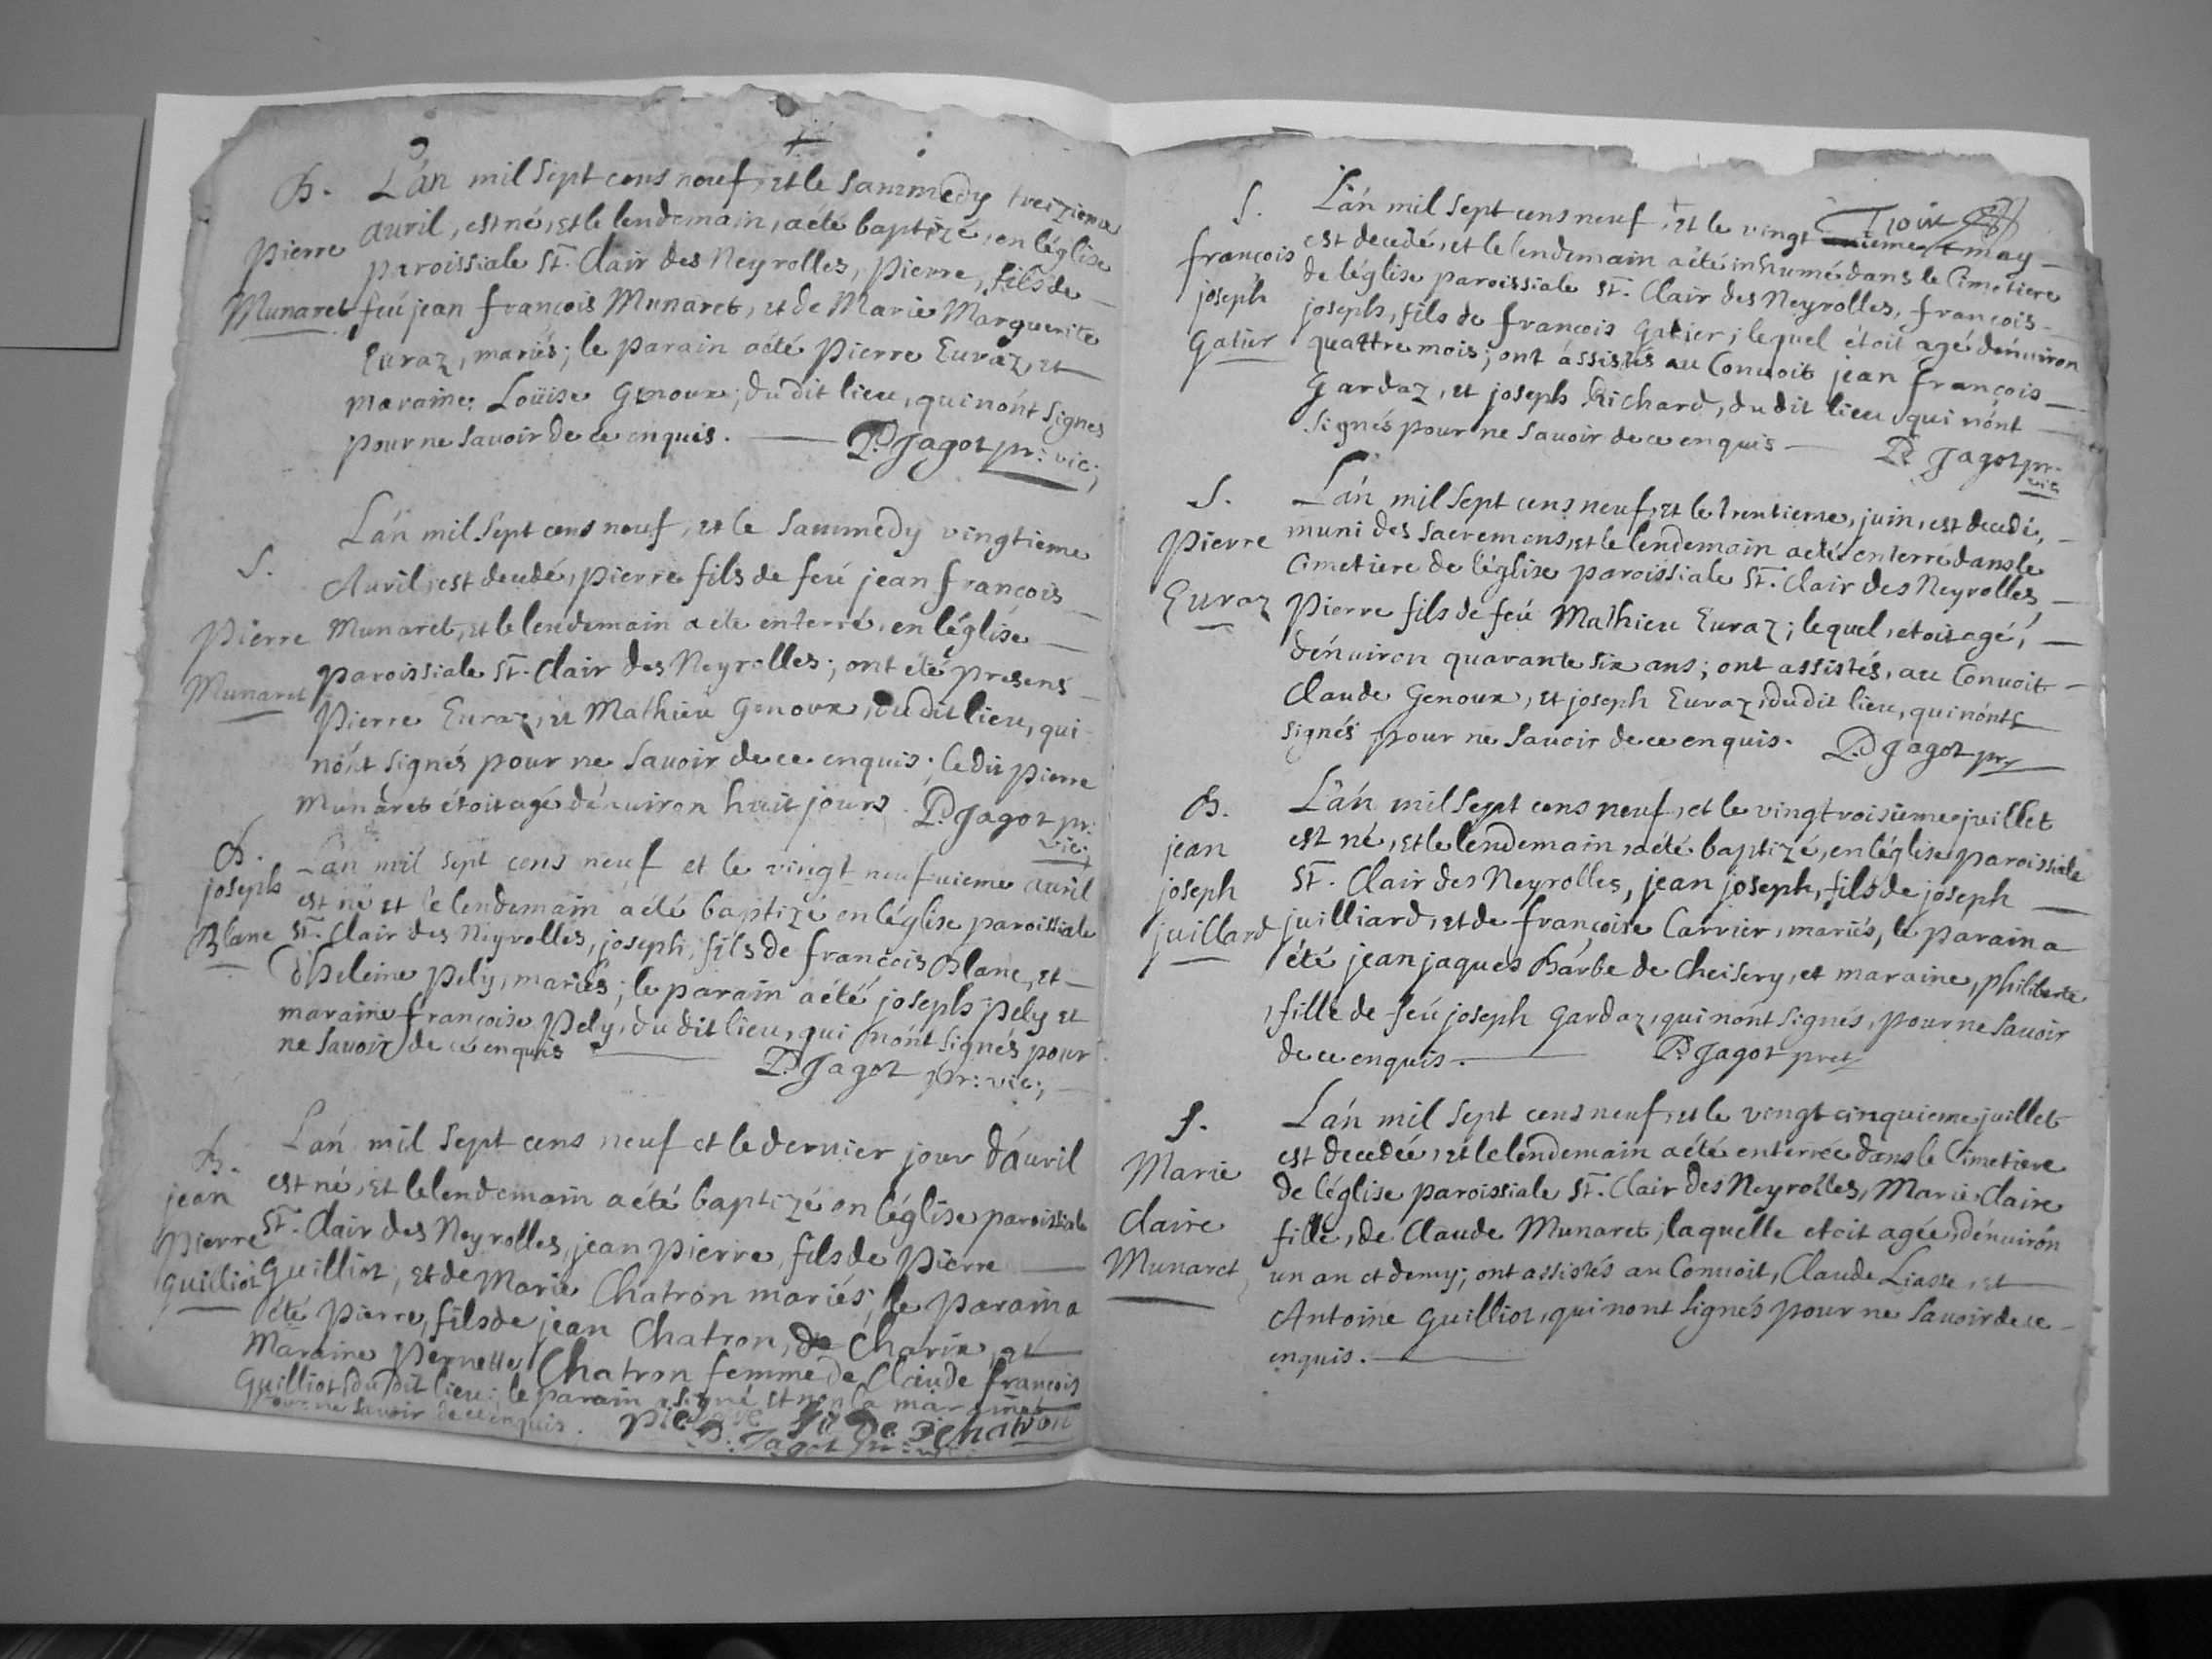 B.
Pierre
Munaret
L'án mil sept cens neuf, et le sammedy treizieme
avril, est né, et le lendemain, a été baptizé, en l'église
paroissiale St. Clair des Neyrolles, Pierre, fils de
feú jean françois Munaret, et de Marie Marguerite
Euraz, mariés; le parain a été Pierre Euraz, et
maraine Loüise Genoux; du dit lieu, qui n'ónt signés
pour ne savoir de ce enquis. P. Jagot pr: vic;
S.
Pierre
Munaret
L'án mil sept cens neuf, et le sammedy vingtieme
Avril, est decedé, Pierre fils de feú jean françois
Munaret, et le lendemain a été enterré, en l'église
paroissiale St. Clair des Neyrolles; ont été presens
Pierre Euraz, et Mathieu Genoux, du dit lieu, qui
n'ónt signés pour ne savoir de ce enquis; le dit Pierre
Munaret étoit agé d'énviron huit jours. P. Jagot pr:
vic;
B.
joseph
Blanc
L'an mil sept cens neuf et le vingt neufvieme avril
est né et le lendemain a été baptizé en l'église paroissiale
St. Clair des Neyrolles, joseph, fils de françois Blanc, et
d'heleine Pely, mariés; le parain a été joseph Pely et
maraine françoise Pely, du dit lieu, qui n'ónt signés pour
ne savoir de ce enquis P. Jagot pr: vic;
B.
jean
Pierre
Guilliot
L'án mil sept cens neuf et le dernier jour d'ávril
est né, et le lendemain a été baptizé en l'église paroissiale
St. Clair des Neyrolles, jean Pierre, fils de Pierre
Guilliot, et de Marie Chatron mariés; le parain a
été Pierre, fils de jean Chatron, de Charix, et
Maraine Pernette Chatron femme de Claude françois
Guilliot, du dit lieu; le parain a signé et non la maraine
pour ne savoir de ce enquis. Chatron
P. Jagot pr: vic;
S.
françois
joseph
Gatier
L'án mil sept cens neuf, et le vingt Trois may
est decedé, et le lendemain a été inhumé dans le Cimetiere
de l'église paroissiale St. Clair des Neyrolles, françois
joseph, fils de françois Gatier; lequel étoit agé d'énviron
quattre mois; ont ássistés au Convoit jean françois
Gardaz, et joseph Richard, du dit lieu, qui n'ónt
signés pour ne savoir de ce enquis P. Jagot pr.
vic
S.
Pierre
Euraz
L'án mil sept cens neuf, et le trentieme, juin, est decedé,
muni des sacremens, et le lendemain a été enterré dans le
Cimetiere de l'église paroissiale St. Clair des Neyrolles,
Pierre fils de feú Mathieu Euraz; lequel, etoit agé,
d'énviron quarante six ans; ont assistés, au Convoit
Claude Genoux, et joseph Euraz, du dit lieu, qui n'ónt
signés pour ne savoir de ce enquis. P. Jagot pr
B.
jean
joseph
juillard
L'án mil sept cens neuf, et le vingt troisieme juillet
est né, et le lendemain, a été baptizé, en l'église paroissiale
St. Clair des Neyrolles, jean joseph, fils de joseph
juilliard, et de françoise Carrier, mariés, le parain a
été jean jaques Bárbe de Cheisery, et maraine, philiberte
fille de feú joseph Gardaz, qui n'ont signés, pour ne savoir
de ce enquis. P. Jagot pret
S.
Marie
Claire
Munaret
L'án mil sept cens neuf, et le vingt cinquieme juillet
est decedée, et le lendemain a été enterrée dans le Cimetiere
de l'église paroissiale St. Clair des Neyrolles, Marie Claire
fille, de Claude Munaret; laquelle etoit agée, d'énvirón
un an et demy; ont assistés au Convoit, Claude Liasse, et
Antoine Guilliot, qui n'ont signés pour ne savoir de ce
enquis.